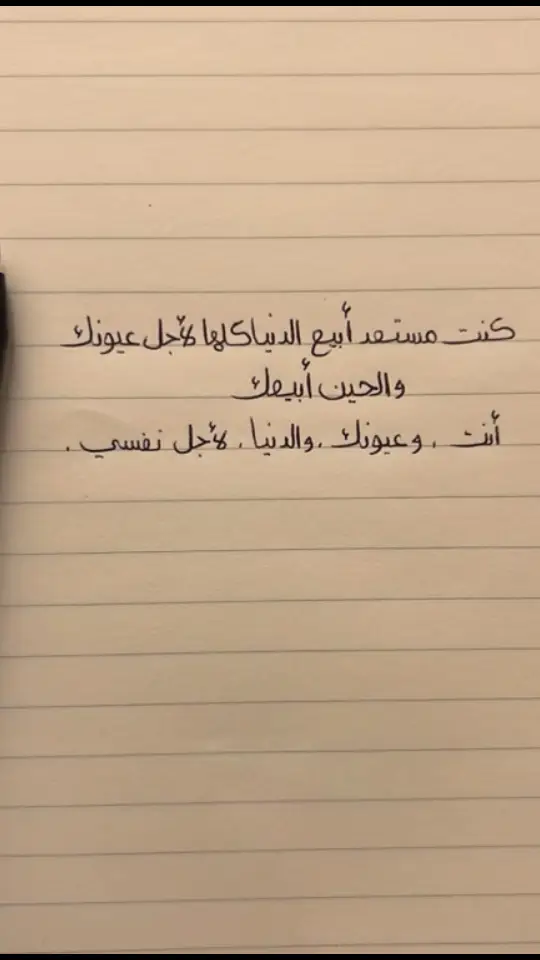 كنت مستعد أبيع الدنيا كلها لأجل عيونك
والحين أبيعك
أنت , وعيونك , والدنيا , لأجل نفسي .